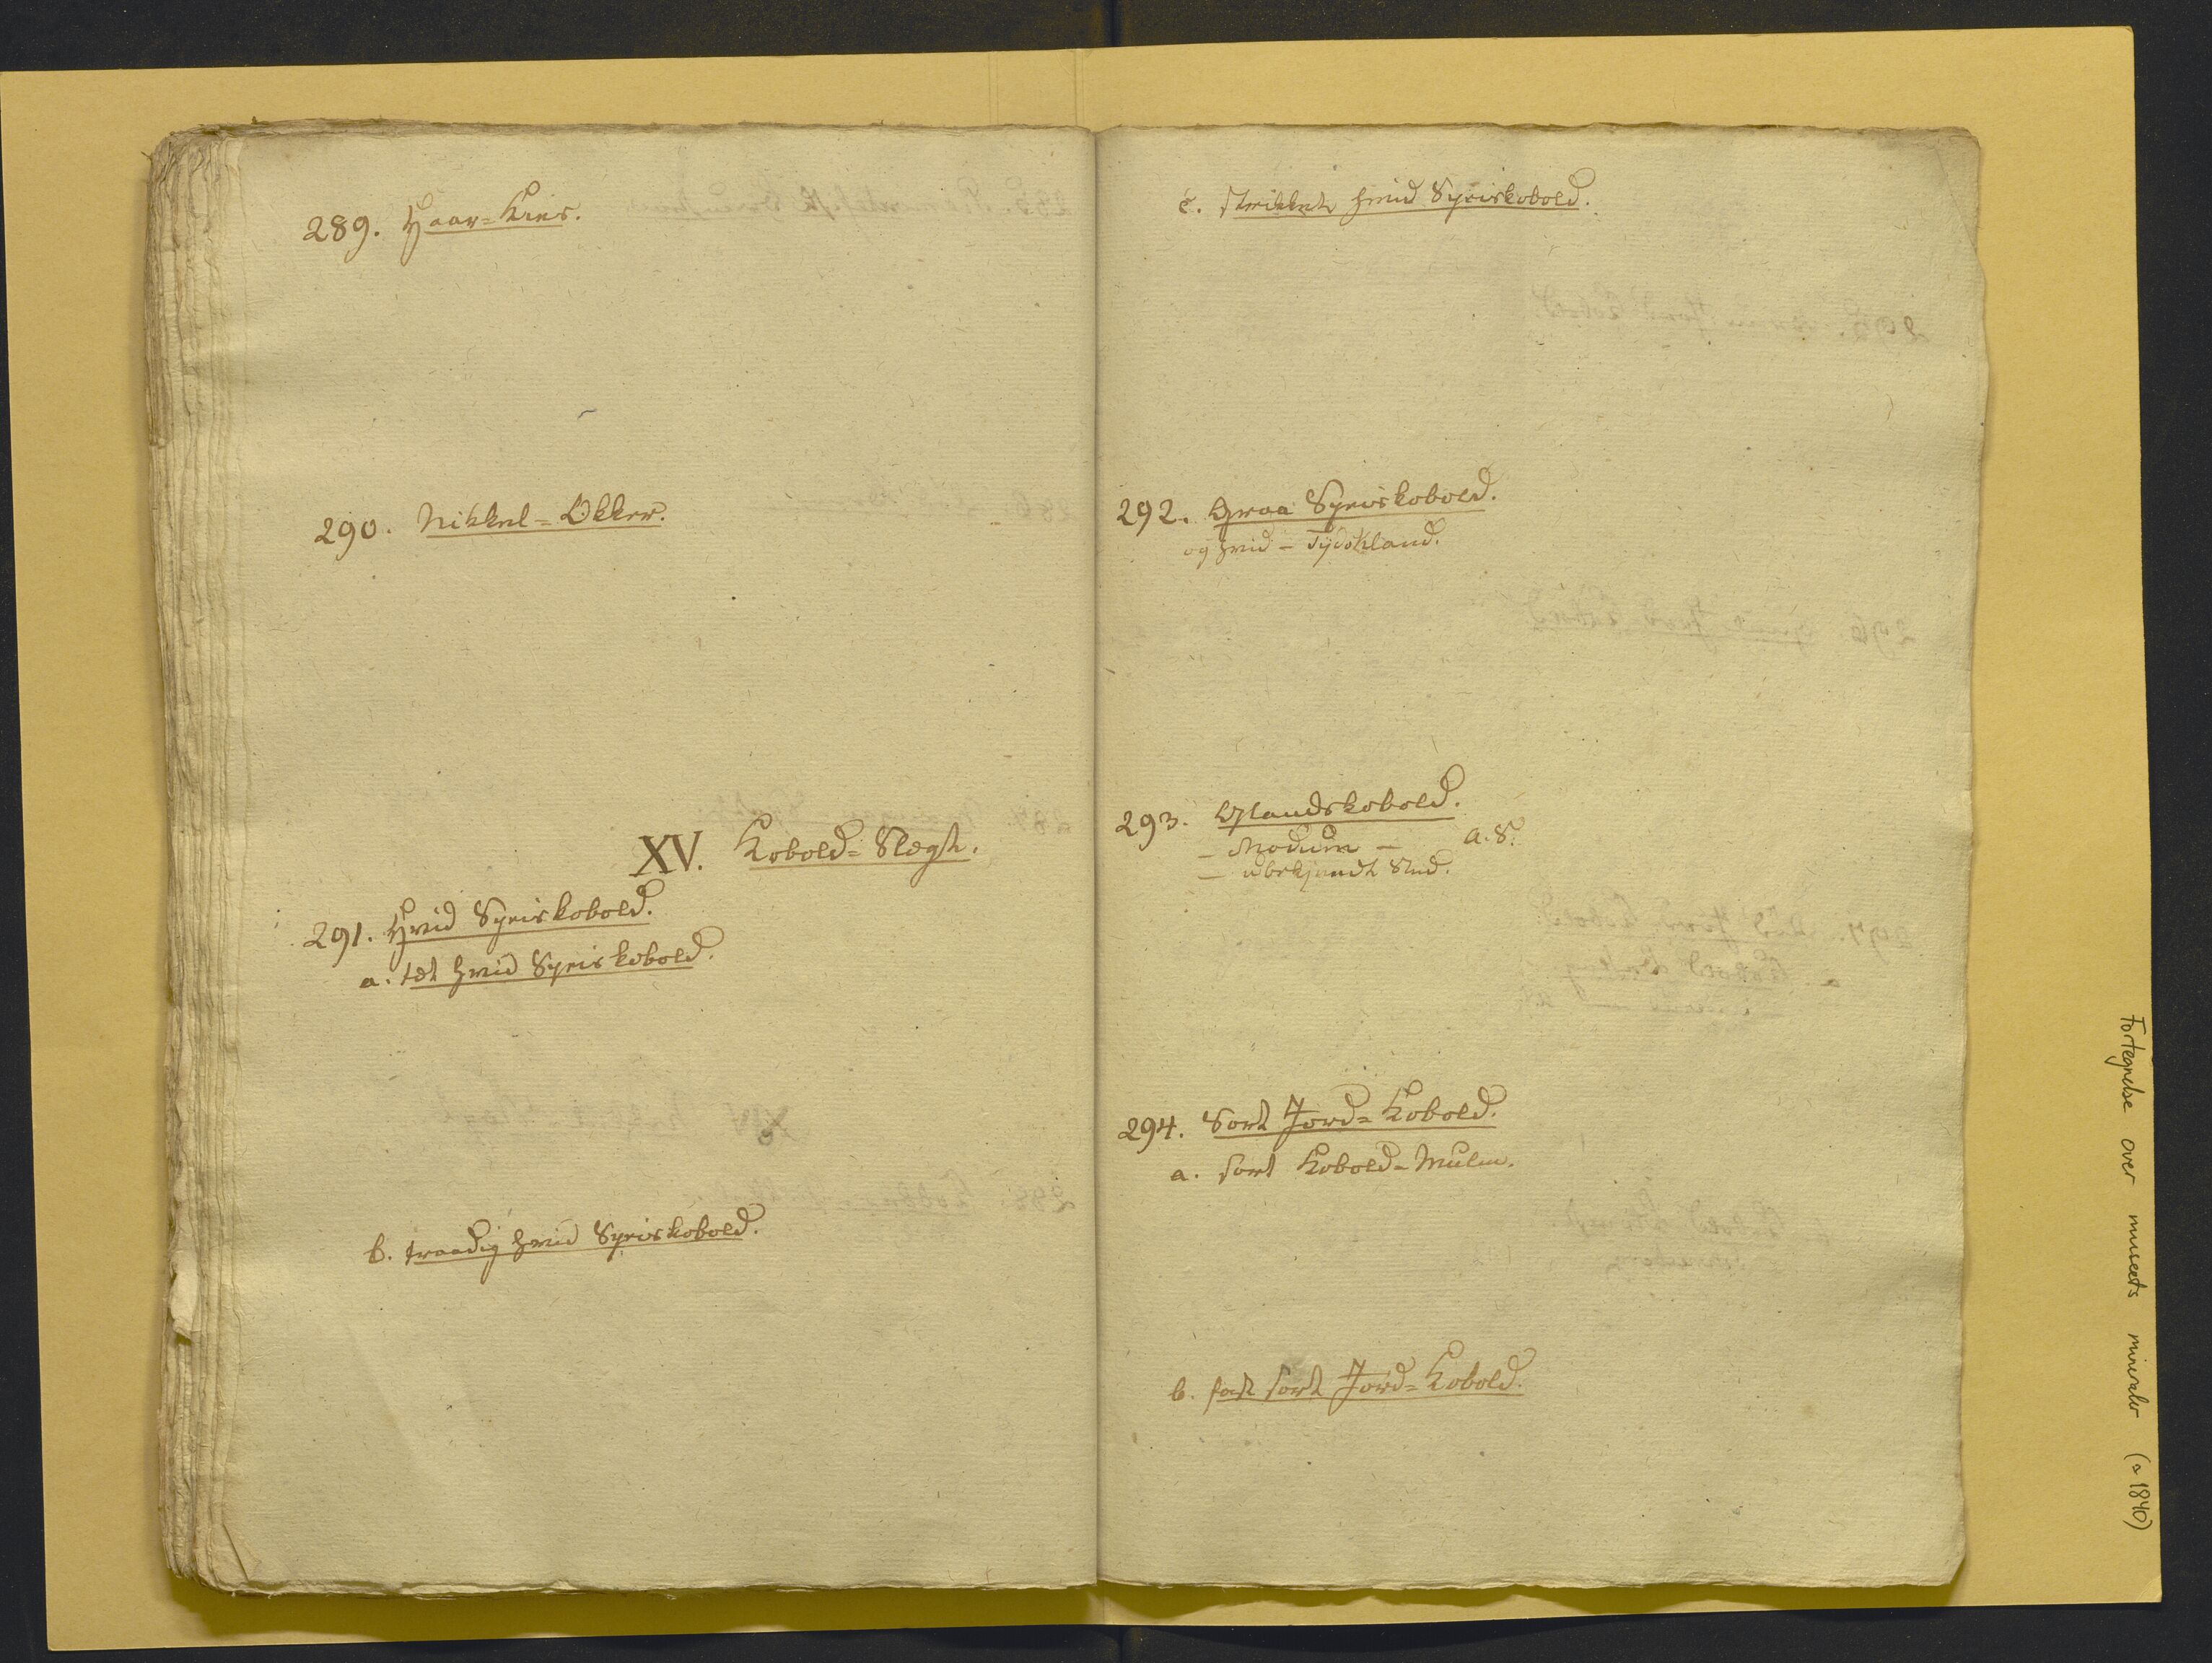 289. Haar-Kies.
290. Nikkel-Okker.
XV. Kobold-Slægt.
291. Hvid Speiskobold.
a. tæt hvid Speiskobold.
b. traadig hvid Speiskobold.
c. strikket hvid Speiskobold.
292. Graa Speiskobold.
og hvid - Tydskland.
293. Glandskobold.
- Modum - a. 8.
- ubekjendt Sted.
294. Sort Jord-Kobold.
a. sort Kobold-Mulm.
b. fast sort Jord-Kobold.
Fortegnelse over museets mineraler (~1840)